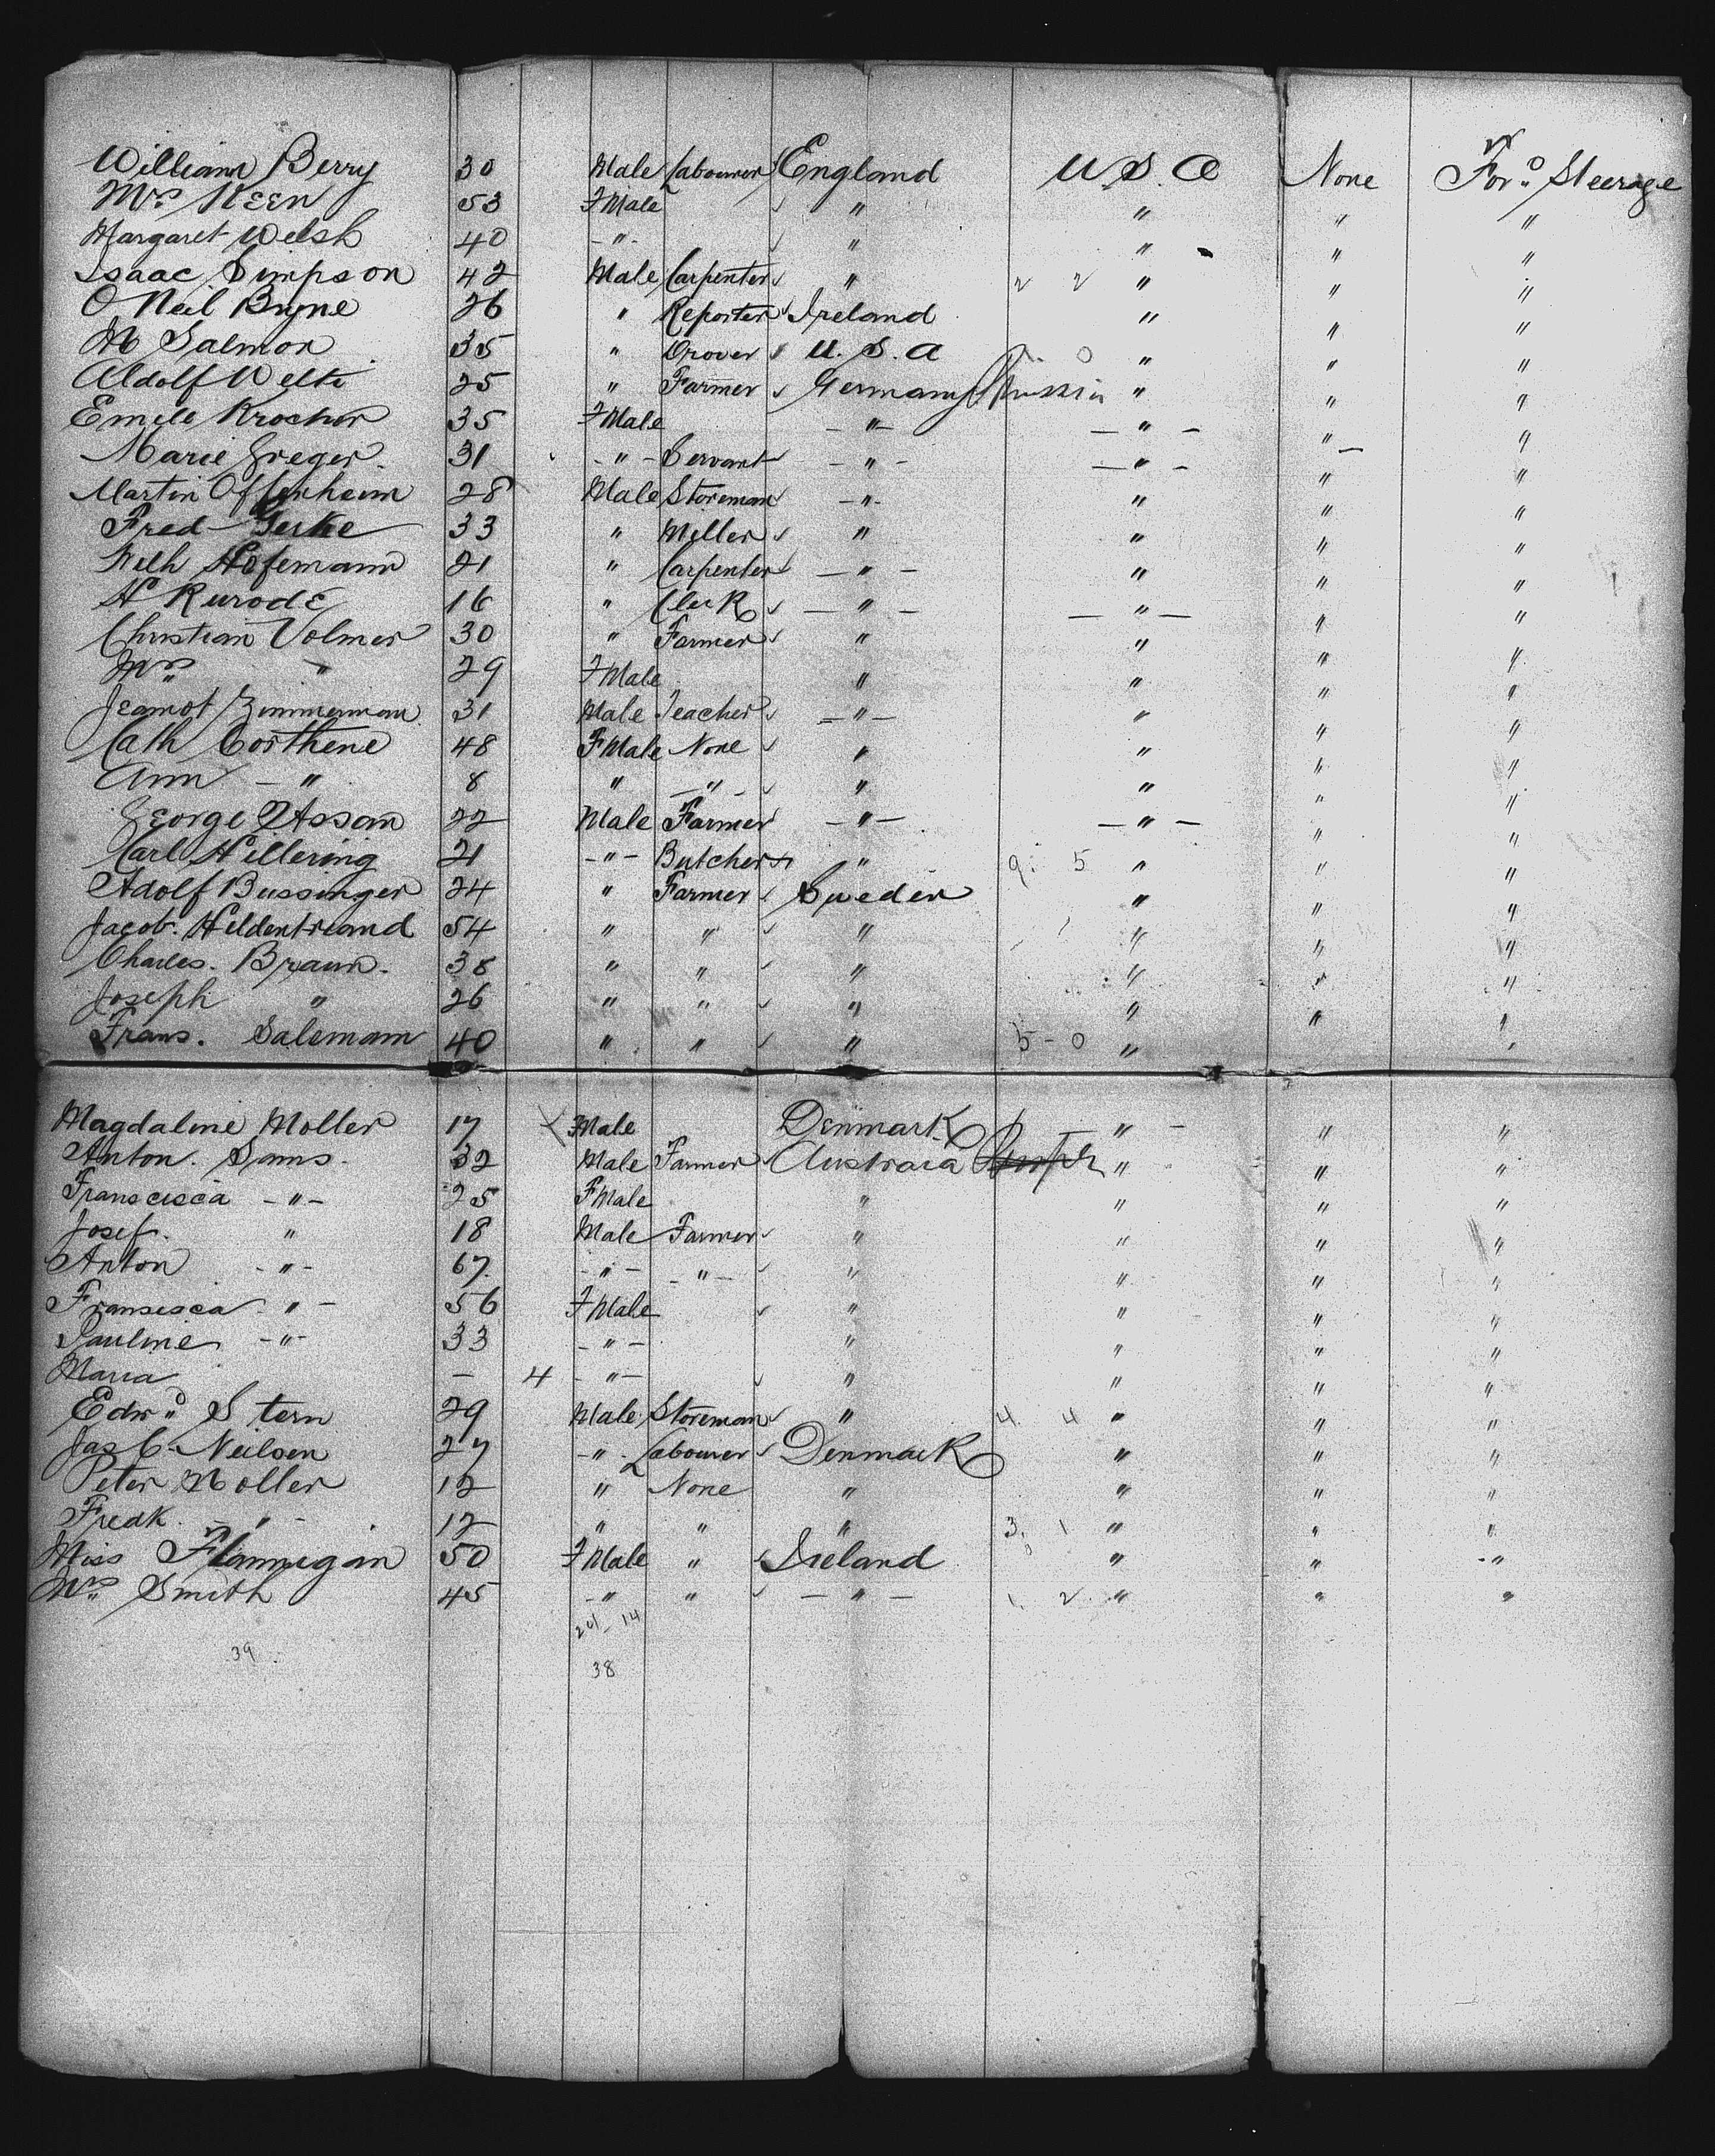 William Berry 30 Male Labourer England U.S.A None For.d Steerage
Mrs Keen 53 FMale " " " "
Margaret Welsh 40 -"- " " " "
Isaac Simpson 42 Male Carpenter " 2 2 " " "
O Neil Byrne 26 " Reporter Ireland " " "
M Salmon 35 " Drover U.S.A 0 " " "
Aldolf Welti 25 " Farmer Germany Prussia " " "
Emile Krochor 35 FMale -"- -"- " "
Marie Greger 31 -"- Servant -"- -"- " "
Martin Offenheim 28 Male Storeman -"- " " "
Fred Gerke 33 " Miller " " " "
Welh Hofemann 21 " Carpenter -"- " " "
H Kurode 16 " Clerk -"- -"- " "
Christian Volmer 30 " Farmer " " " "
Mrs " 29 FMale " " " "
Jeamot Zimmerman 31 Male Teacher -"- " " "
Cath Corthene 48 FMale None " " " "
Ann -"- 8 " -"- " " " "
George Assam 22 Male Farmer -"- -"- " "
Carl Hillering 21 -"- Butcher " 9. 5 " " "
Adolf Bussinger 24 " Farmer Sweden " " "
Jacob. Heldentrand 54 " " " " " "
Charles. Braun. 38 " " " " " "
Joseph " 26 " " " " " "
Frans. Salemam 40 " " " 5-0 " " "
Magdaline Moller 17 FMale Denmark " " "
Anton. Sams. 32 Male Farmer Austraia " " "
Franscisca -"- 25 FMale " " " "
Josef. " 18 Male Farmer " " " "
Anton -"- 67. -"- -"- " " " "
Fransisca "- 56 FMale " " " "
Pauline -"- 33 -"- " " " "
Maria - 4 -"- " " " "
Edw.d Stern 29 Male Storeman " 4. 4 " " "
Jas C. Neilsen 27 -"- Labourer Denmark " " "
Peter Moller 12 " None " " " "
Fredk. -"- 12 " " " 3. 1 " " "
Miss Flannigan 50 FMale " Ireland " " -"
Mrs Smith 45 -" " -"- 1. 2 " " "
24-14
39 38